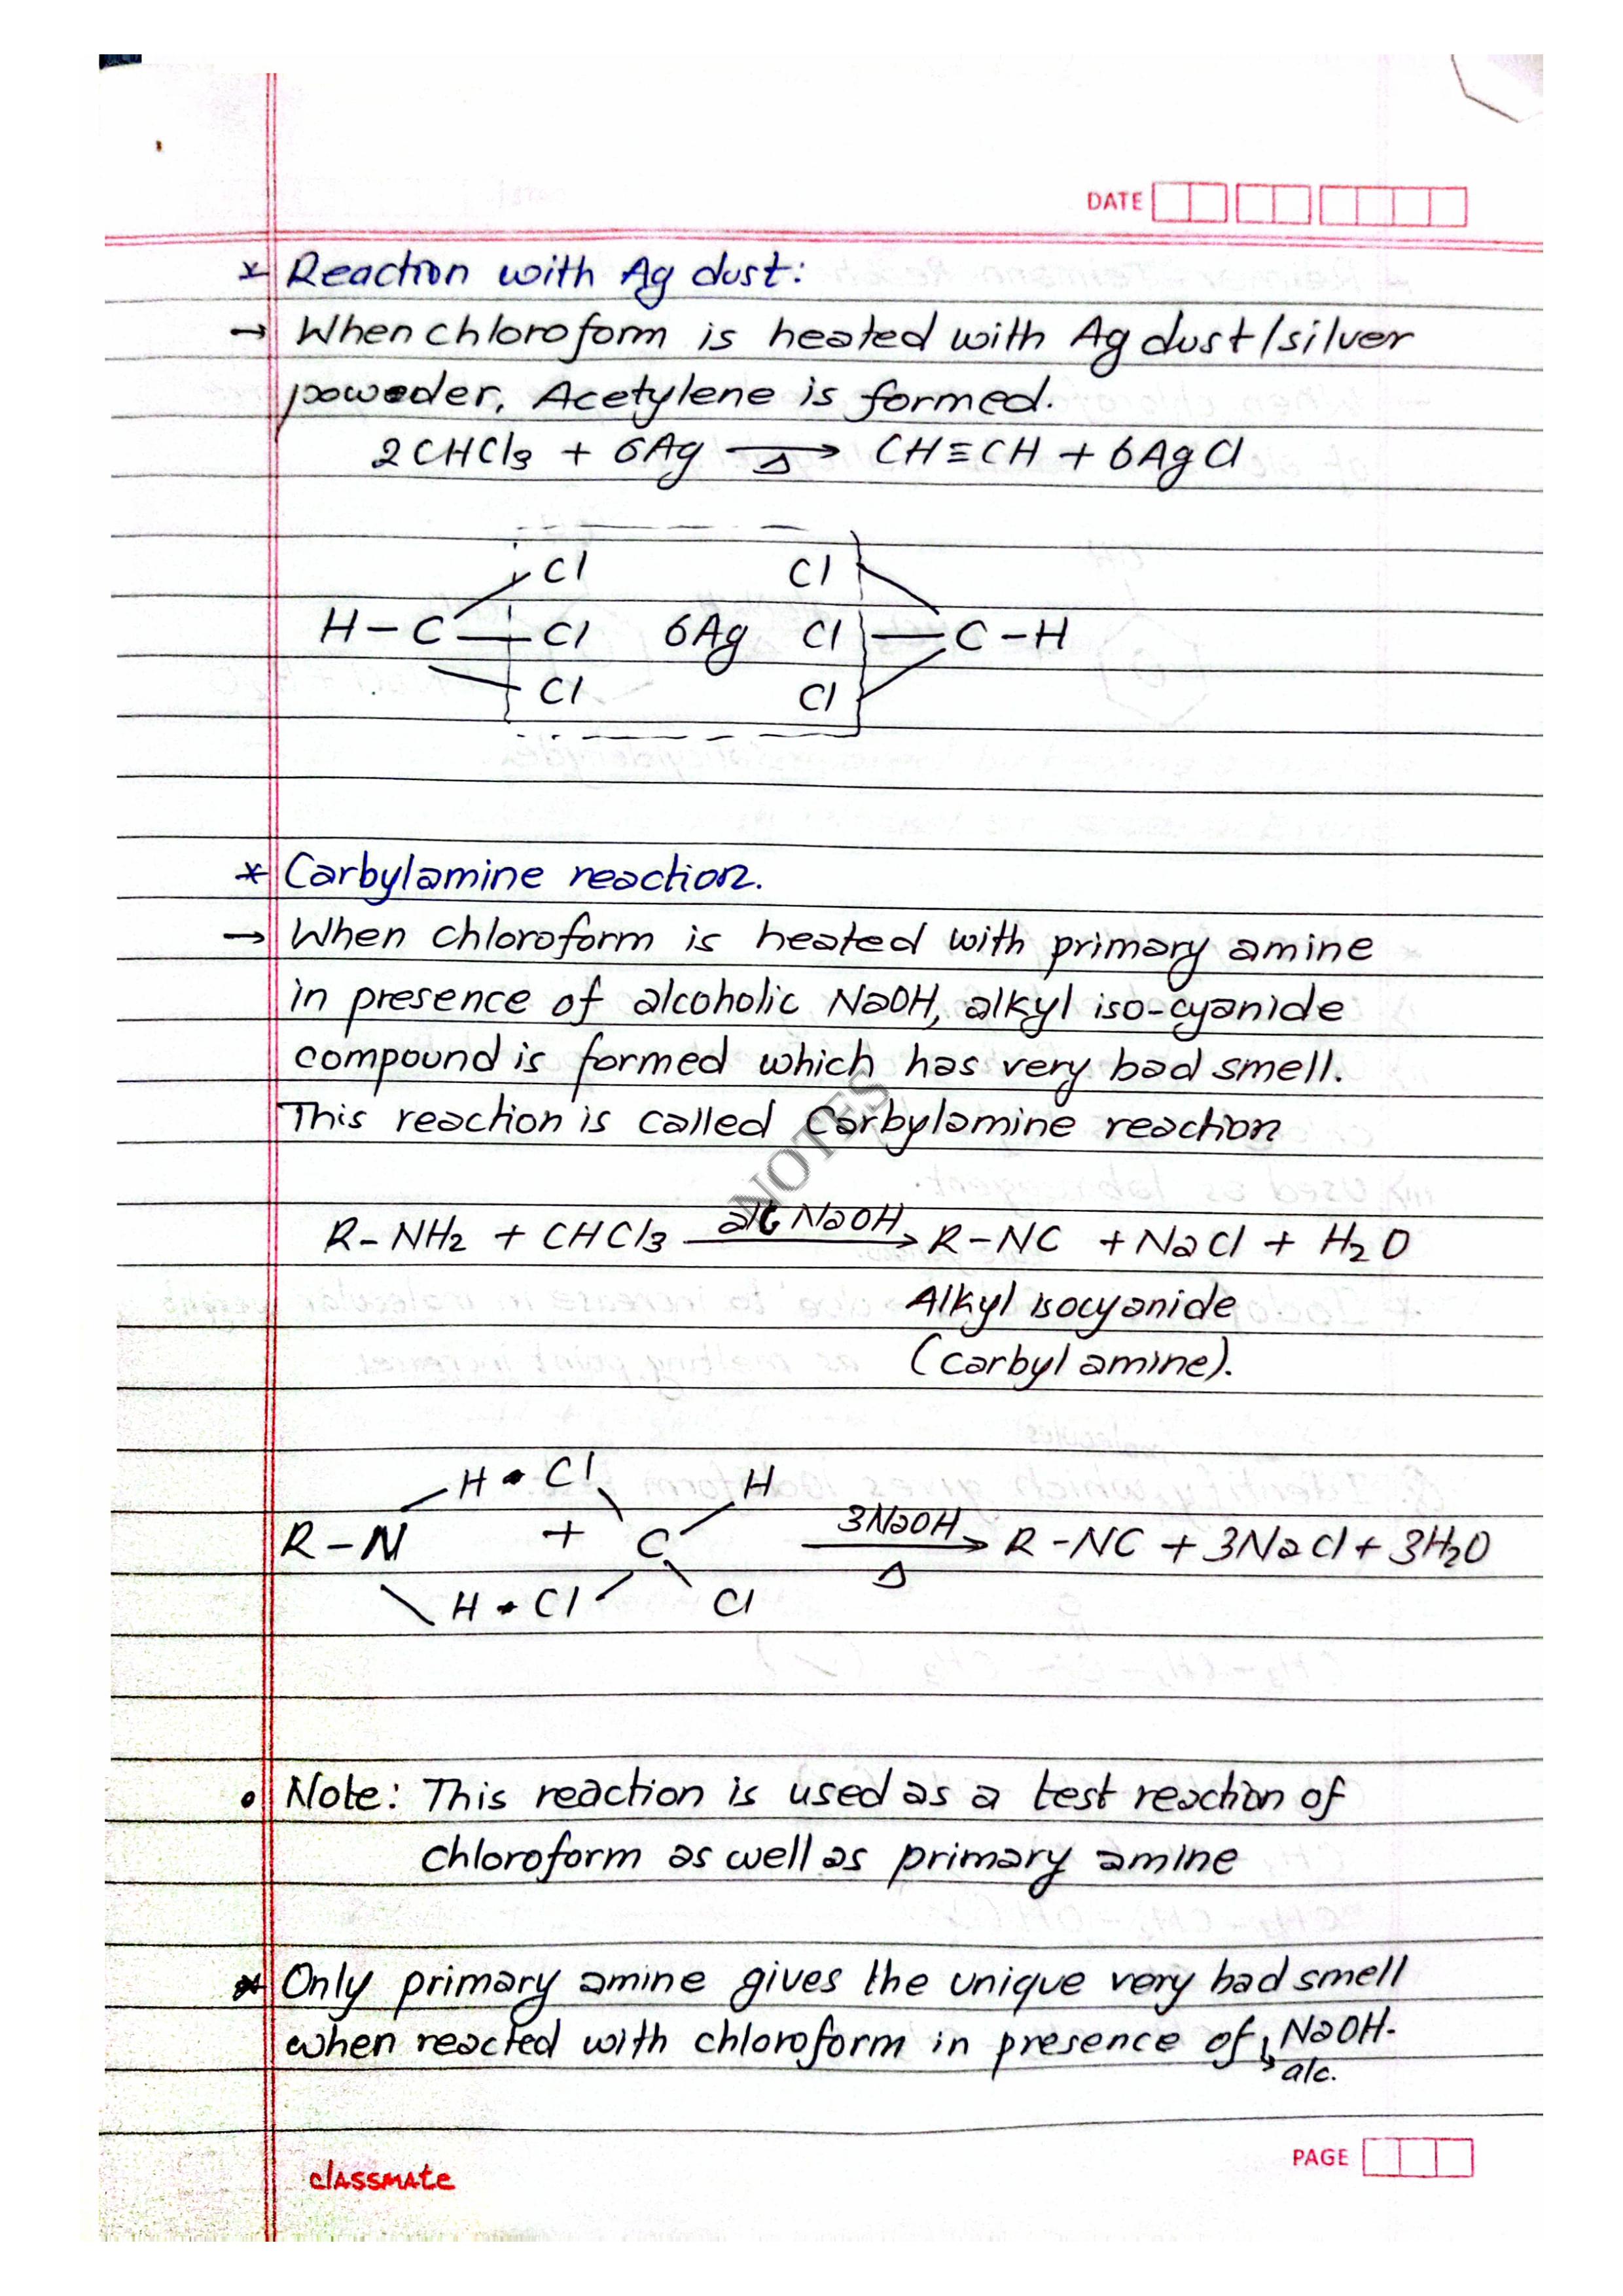 DATE
* Reaction with Ag dust:
→ When chloroform is heated with Ag dust/silver
powder, Acetylene is formed.
2CHCl₃ + 6Ag →Δ CH≡CH + 6AgCl
Cl Cl
H–C–Cl 6Ag Cl–C–H
Cl Cl
* Carbylamine reaction.
→ When chloroform is heated with primary amine
in presence of alcoholic NaOH, alkyl iso-cyanide
compound is formed which has very bad smell.
This reaction is called Carbylamine reaction
NOTES
R–NH₂ + CHCl₃ alc NaOH→ R–NC + NaCl + H₂O
Alkyl isocyanide
(carbyl amine).
H • Cl H
R–N + C 3NaOH→Δ R–NC + 3NaCl + 3H₂O
H • Cl Cl
• Note: This reaction is used as a test reaction of
chloroform as well as primary amine
* Only primary amine gives the unique very bad smell
when reacted with chloroform in presence of ↳ NaOH.
alc.
PAGE
classmate